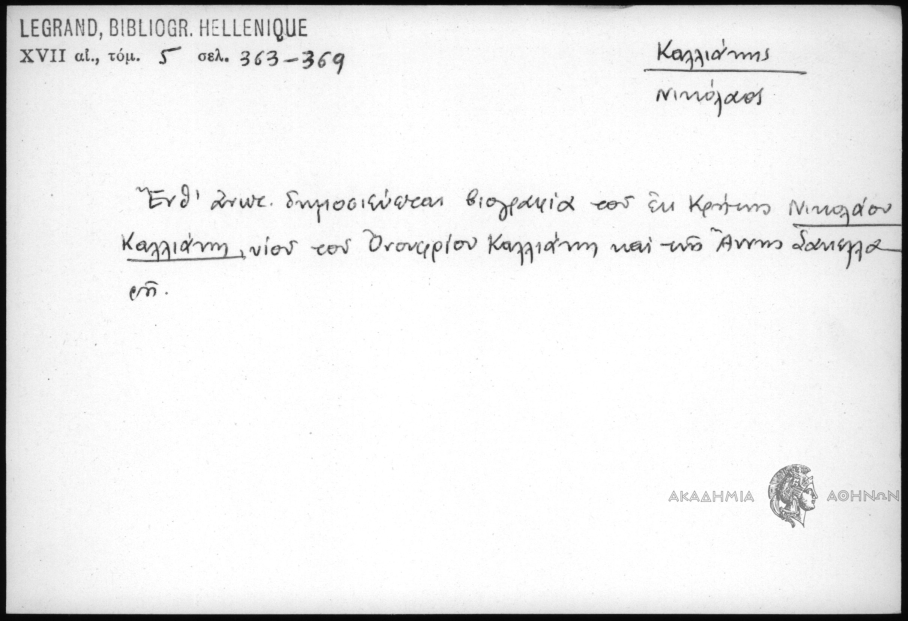 LEGRAND, BIBLIOGR. HELLENIQUE
XVII αἰ., τόμ. 5 σελ. 363-369
Καλλιάκης
Νικόλαος
Ἔνθ' ἀνωτ. δημοσιεύεται βιογραφία τοῦ ἐκ Κρήτης Νικολάου
Καλλιάκη, υἱοῦ τοῦ Ὀνουφρίου Καλλιάκη καὶ τῆς Ἄννης Σακελλα
ρῆ.
ΑΚΑΔΗΜΙΑ ΑΘΗΝΩΝ